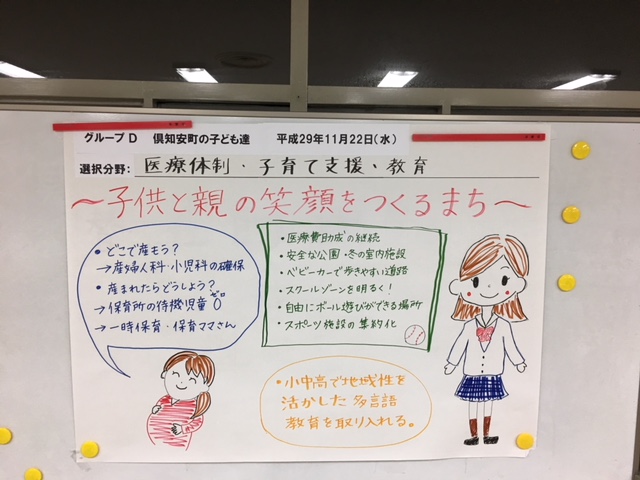 グループD 倶知安町の子ども達 平成29年11月22日(水)
選択分野: 医療体制・子育て支援・教育
〜子供と親の笑顔をつくるまち〜
・どこで産もう?
→産婦人科・小児科の確保
・産まれたらどうしよう?
→保育所の待機児童0 ゼロ
→一時保育・保育ママさん
・医療費助成の継続
・安全な公園・冬の室内施設
・ベビーカーで歩きやすい道路
・スクールゾーンを明るく!
・自由にボール遊びができる場所
・スポーツ施設の集約化
・小中高で地域性を
活かした多言語
教育を取り入れる。